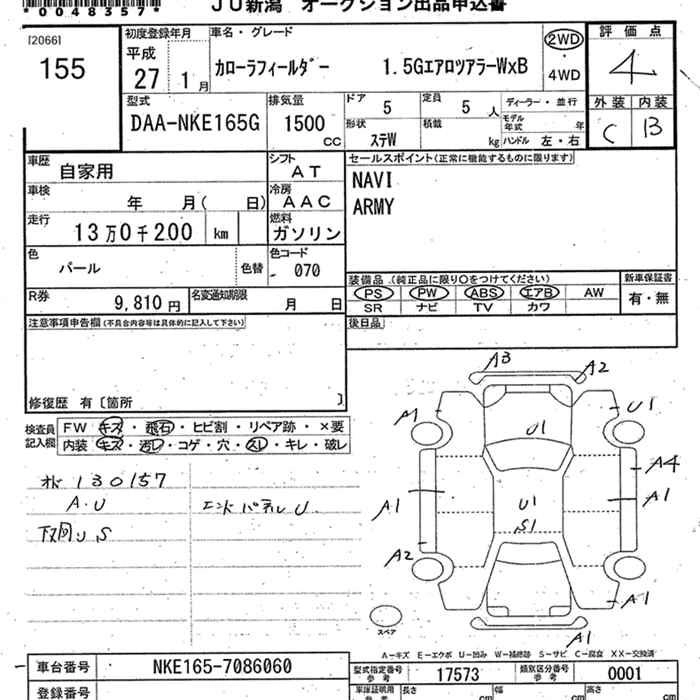 *0048357*
JU新潟 オークション出品申込書
[2066]
155
初度登録年月
平成
27 1月
車名・グレード
カローラフィールダー 1.5GエアロツアラーWxB
2WD
・
4WD
評価点
4
外装 内装
C B
型式
DAA-NKE165G
排気量
1500
CC
ドア
5
定員
5人
ディーラー・並行
形状
ステW
積載
kg
モデル年式 年
ハンドル 左・右
車歴
自家用
シフト
AT
車検
年 月( 日)
冷房
AAC
走行
13万0千200 km
燃料
ガソリン
色
パール
色替
色コード
070
R券
9,810円
名変通知期限
月 日
セールスポイント(正常に機能するものに限ります)
NAVI
ARMY
装備品 (純正品に限り〇をつけてください)
PS PW ABS エアB AW
SR ナビ TV カワ
新車保証書
有・無
後日品
注意事項申告欄(不具合内容等は具体的に記入して下さい)
修復歴 有〔箇所 〕
検査員記入欄
FW キズ・飛石・ヒビ割・リペア跡・×要
内装 キズ・汚レ・コゲ・穴・スレ・キレ・破レ
130157
A.U
エンドパネルU
下回りS
A3
A2
A1
U1
U1
A4
A1
A1
U1
S1
A2
A1
A1
スペア
A－キズ E－エクボ U－凹み W－補修跡 S－サビ C－腐食 XX－交換済
車台番号
NKE165-7086060
型式指定番号
参考
17573
類別区分番号
参考
0001
登録番号
車庫証明用
参考
長さ
cm
幅
cm
高さ
cm